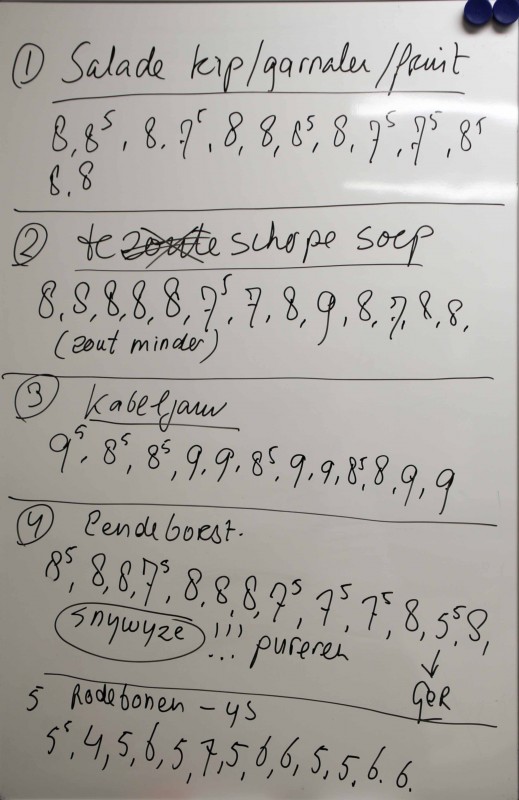 ① Salade kip/garnalen/fruit
8, 8⁵, 8, 7⁵, 8, 8, 8⁵, 8, 7⁵, 7⁵, 8⁵
8, 8
② te zoute scherpe soep
8, 8, 8, 8, 8, 7⁵, 7, 8, 9, 8, 7, 8, 8,
(zout minder)
③ Kabeljauw
9⁵, 8⁵, 8⁵, 9, 9, 8⁵, 9, 9, 8⁵, 8, 9, 9
④ Eendeborst.
8⁵, 8, 8, 7⁵, 8, 8, 8, 7⁵, 7⁵, 7⁵, 8, 5⁵, 8,
snywyze !!! ... pureren
↓
Ger
5 Rodebonen - ys
5⁵, 4, 5, 6, 5, 7, 5, 6, 6, 5, 5, 6, 6.